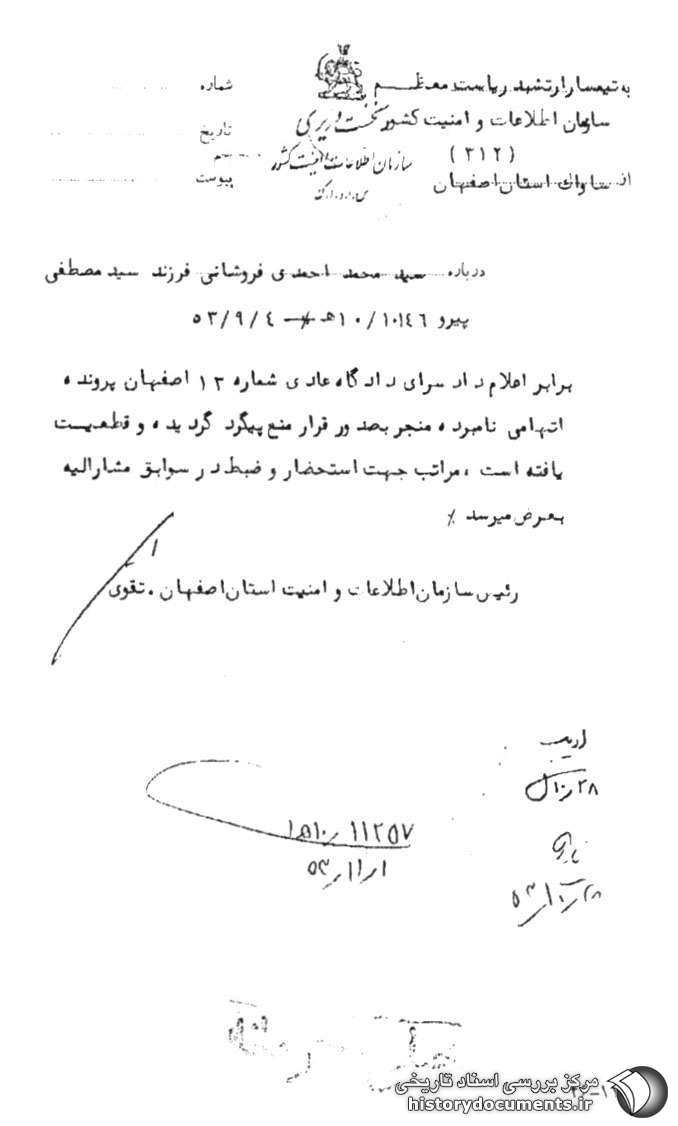 به تیمسار ارتشبد ریاست معظم
سازمان اطلاعات و امنیت کشور
(۳۱۲)
از ساواک استان اصفهان
نخست وزیری
سازمان اطلاعات و امنیت کشور
س.ا.و.ا.ک
شماره
تاریخ
پیوست
درباره سید محمد احمدی فروشانی فرزند سید مصطفی
پیرو ۱۰/۱۰۱۴۶هـ - ۵۳/۹/۴
برابر اعلام دادسرای دادگاه عادی شماره ۱۳ اصفهان پرونده
اتهامی نامبرده منجر بصدور قرار منع پیگرد گردیده و قطعیت
یافته است ، مراتب جهت استحضار و ضبط در سوابق مشارالیه
بعرض میرسد ٪
رئیس سازمان اطلاعات و امنیت استان اصفهان . تقوی
۱۱۲۵۷ / ۱۰هـ۱
۵۳/۱۱/۱
۲۸/۱۰
۵۳/۱۰/۲۸
مرکز بررسی اسناد تاریخی
historydocuments.ir